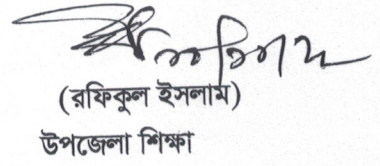 (রফিকুল ইসলাম)
উপজেলা শিক্ষা